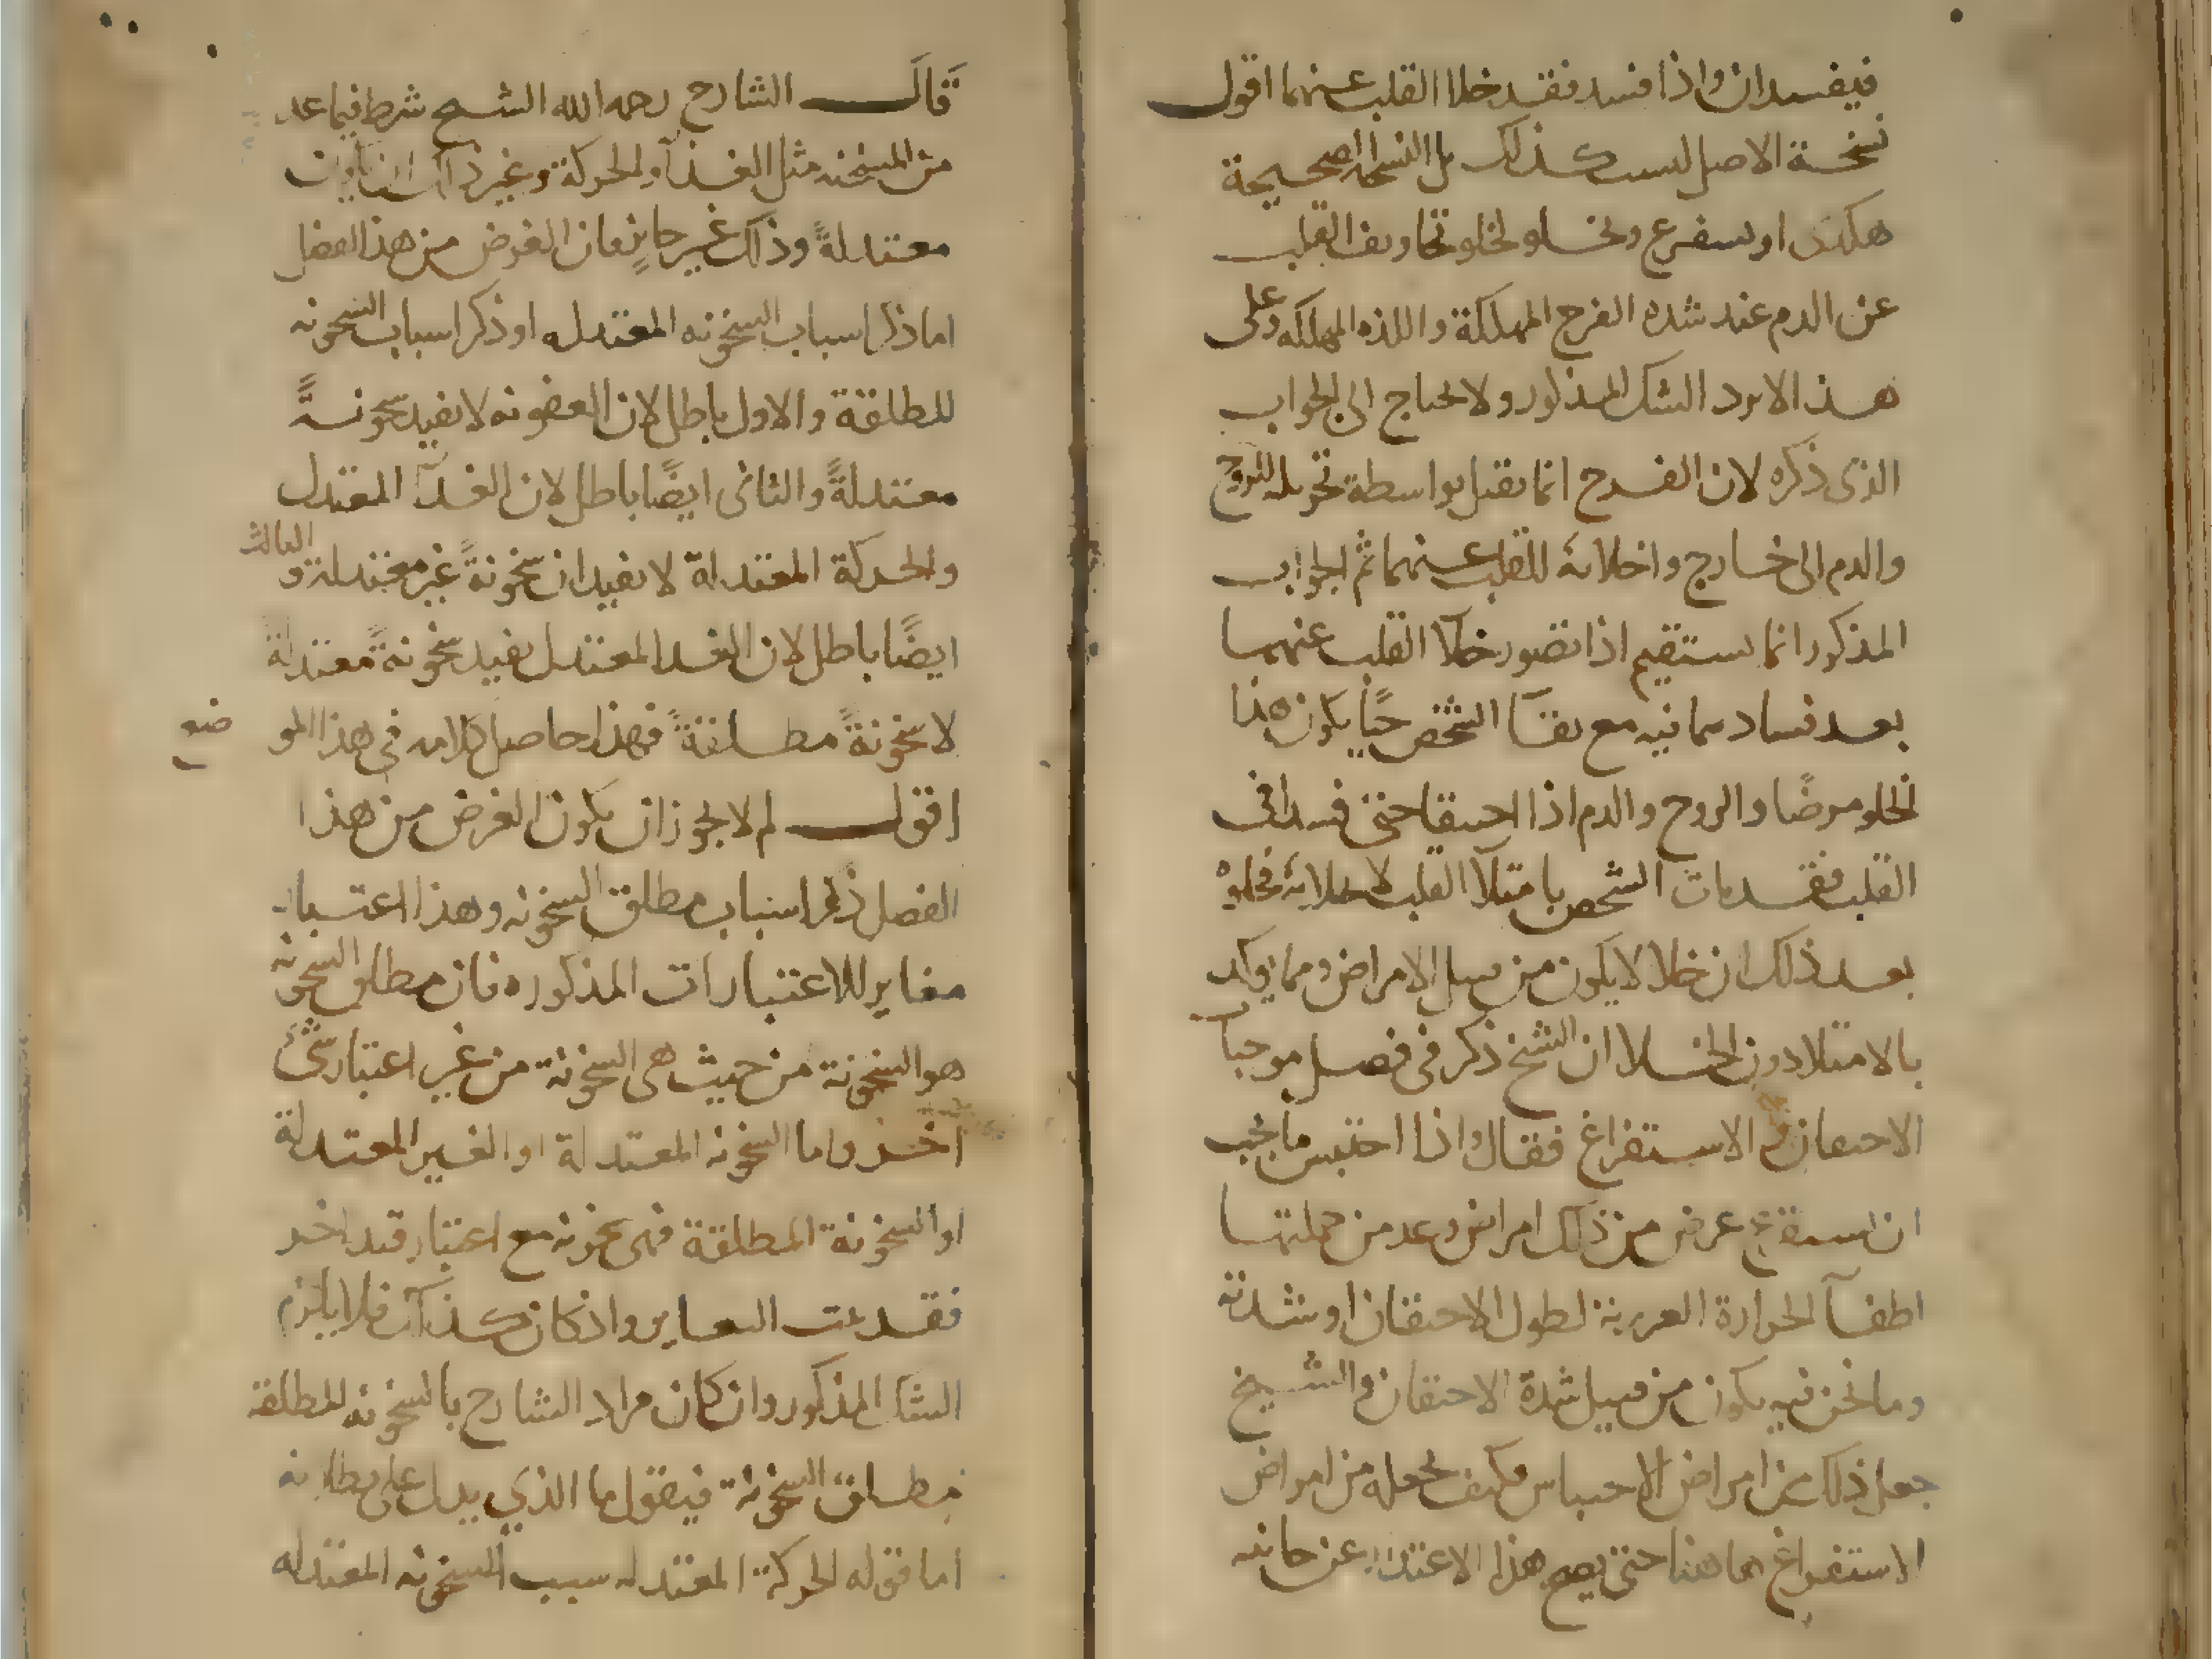 فيفسدان واذا فسد فقد خلا القلب عنهما اقول
نسخة الاصل ليست كذلك بل النسخة الصحيحة
هكذى او يستفرغ ويخلو لخلو تجاويف القلب
عن الدم عند شده الفرح المهلكة واللذه المهلكه وعلى
هذا لا يرد الشك المذكور ولا يحتاج الى الجواب
الذى ذكره لان الفرح انما يقتل بواسطة تحريك الروح
والدم الى خارج واخلائه للقلب عنهما ثم الجواب
المذكور انما يستقيم اذا تصور خلآ القلب عنهما
بعد فساد مما فيه مع بقآ الشخص حيًا يكون هذا
الخلو مرضًا والروح والدم اذا احتقنا حتى فسدا فى
القلب فقد مات الشخص بامتلآ القلب لا خلائه فخلوه
بعد ذلك ان خلا لا يكون من قبيل الامراض ومما يؤكد
بالامتلا دون الخلا ان الشيخ ذكر فى فصل موجبات
الاحتقان و الاستفراغ فقال واذا احتبس ما يجب
ان يستفرغ عرض من ذلك امراض وعد من جملتها
اطفآ الحرارة الغريزية لطول الاحتقان او شدته
وما نحن فيه يكون من قبيل شدة الاحتقان والشيخ
جعل ذلك من امراض الاحتباس فكيف نجعله من امراض
الاستفراغ هاهنا حتى يصح هذا الاعتذار عن جانبه
قال الشارح رحمه الله الشيخ شرط فيما عد
من المسخنه مثل الغذآ والحركة وغير ذلك ان يكون
معتدلةً وذلك غير جايزٍ فان الغرض من هذا الفصل
اما ذكر اسباب السخونه المعتدله او ذكر اسباب السخونه
المطلقة والاول باطل لان العفونه لا تفيد سخونةً
معتدلةً والثانى ايضًا باطل لان الغذآ المعتدل
والحركة المعتدلة لا تفيدان سخونةً غير معتدلة و الثالث
ايضًا باطل لان الغدا المعتدل يفيد سخونةً معتدلة
لا سخونةً مطلقةً فهذا حاصل كلامه فى هذا المو ضع
اقول لم لا يجوز ان يكون الغرض من هذا
الفصل ذكر اسباب مطلق السخونه وهذا اعتبار
مغاير للاعتبارات المذكوره فان مطلق السخونه
هو السخونة من حيث هى السخونة من غير اعتبار شئ
اخر واما السخونه المعتدلة او الغير المعتدلة
او السخونة المطلقة فهى سخونه مع اعتبار قيد اخر
فقد ثبت التغاير واذ كان كذلك فلا يلزم
الشك المذكور وان كان مراد الشارح بالسخونه المطلقة
مطلق السخونة فيقول ما الذي يدل على بطلانه
اما قوله الحركة المعتدله سبب السخونه المعتدله